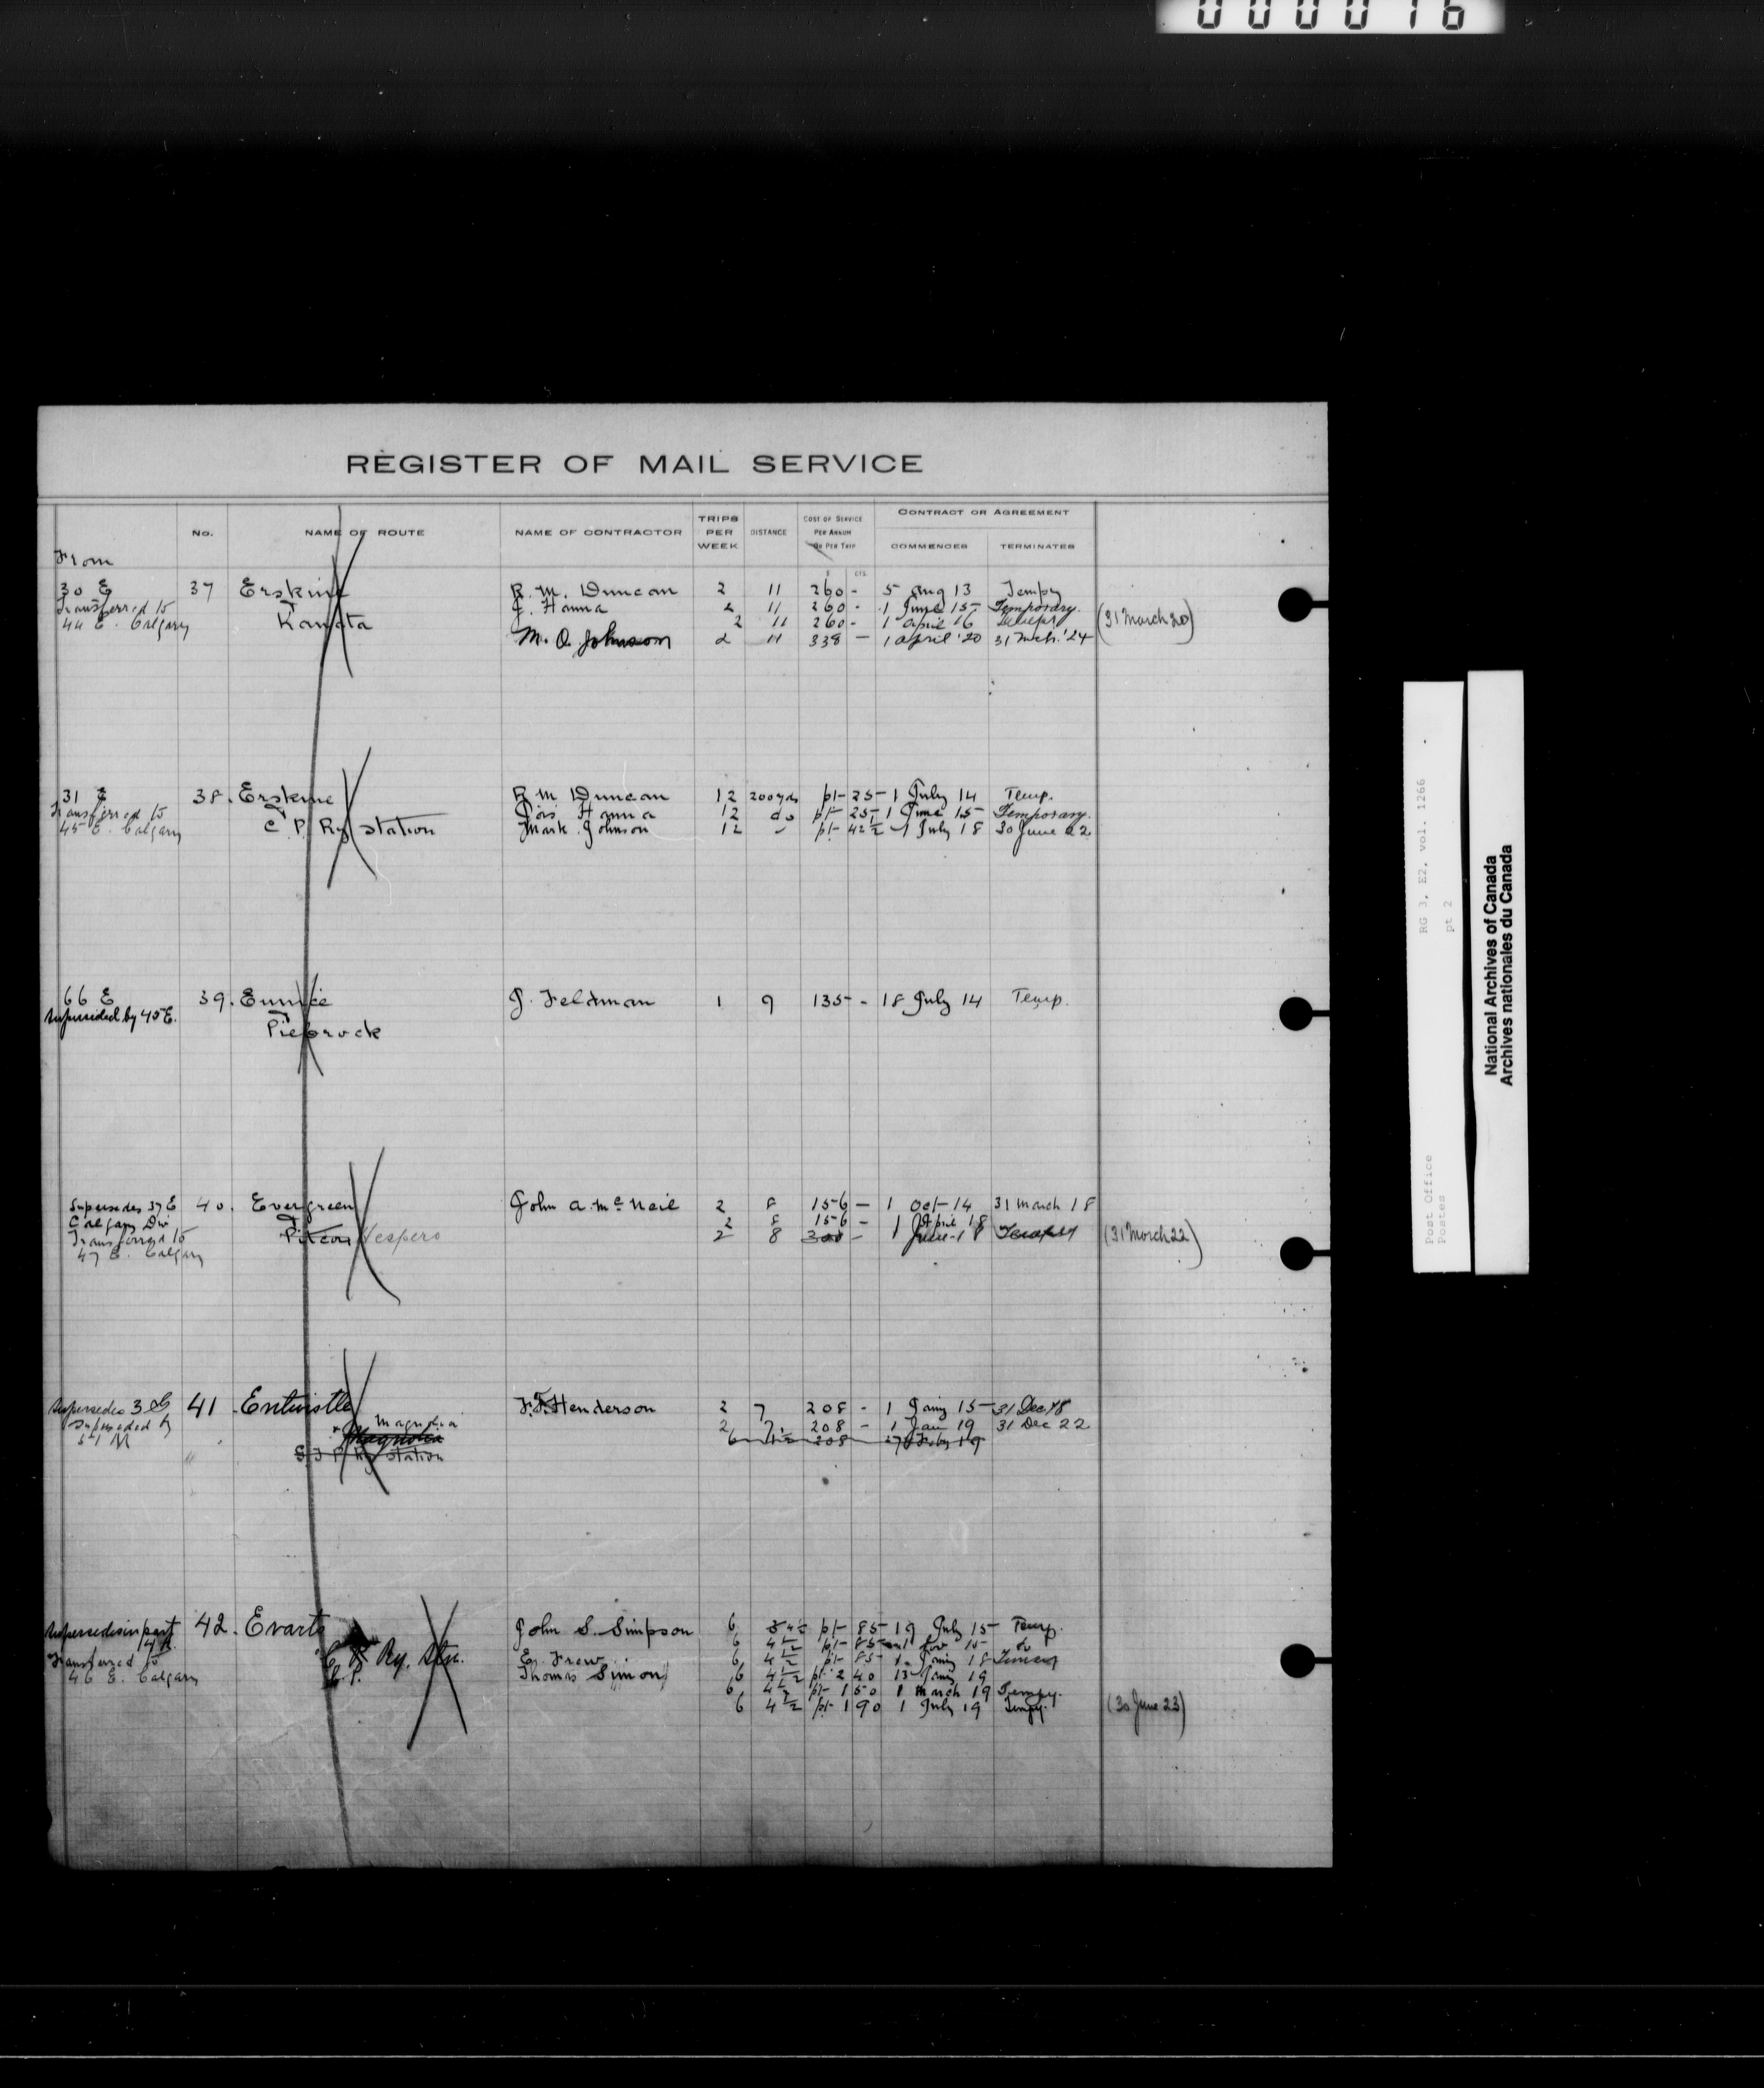 000016
REGISTER OF MAIL SERVICE
From
No.
NAME OF ROUTE
NAME OF CONTRACTOR
TRIPS PER WEEK
DISTANCE
COST OF SERVICE PER ANNUM OR PER TRIP
CONTRACT OR AGREEMENT
COMMENCES
TERMINATES
$ cts.
30 E 37 Erskine R. M. Duncan 2 11 260 - 5 Aug 13 Tempy
Transferred to & J. Hanna 2 11 260 - 1 June 15 Temporary.
44 E. Calgary Kanata 2 11 260 - 1 April 16 (31 March 20)
M. O. Johnson 2 11 338 — 1 April '20 31 Mch. '24
31 E 38. Erskine R M Duncan 12 200 yds pt- 25 - 1 July 14 Temp.
Transferred to & Lois Hanna 12 do pt- 25 - 1 June 15 Temporary.
45 E. Calgary C. P. Ry Station Mark Johnson 12 - pt- 42 1/2 - 1 July 18 30 June 22
66 E 39. Eunice J. Feldman 1 9 135 - 18 July 14 Temp.
superseded by 45 E. &
Piebrock
Supersedes 37 E 40. Evergreen John A. McNeil 2 8 156 — 1 Oct 14 31 March 18
Calgary Div & 2 8 156 — 1 April 18
Transferred to Vespero 2 8 300 — 1 June 18 Tempy (31 March 22)
47 E. Calgary
Supersedes 3 41. Entwistle F. Henderson 2 7 208 - 1 Jany 15 - 31 Dec 18
Superseded by & Magnolia 2 7 208 - 1 Jan 19 31 Dec 22
51 M Magnolia 6 208 27 Feby 19
G. T. P. Ry Station
Supersedes in part 42. Evarts John S. Simpson 6 pt- 85 - 19 July 15 - Temp.
Transferred to & 6 4 1/2 pt- 85 - 15 - do
46 E. Calgary C. P. Ry. Stn. E. Frew 6 4 1/2 pt- 85 - 1 Jany 18
C. P. Thomas Simion 6 4 1/2 pt- 2 40 13 Jany 19
6 4 1/2 pt- 1 50 1 March 19 Tempy.
6 4 1/2 pt- 1 90 1 July 19 Tempy. (30 June 23)
RG 3, E2, vol. 1266
pt 2
Post Office
Postes
National Archives of Canada
Archives nationales du Canada